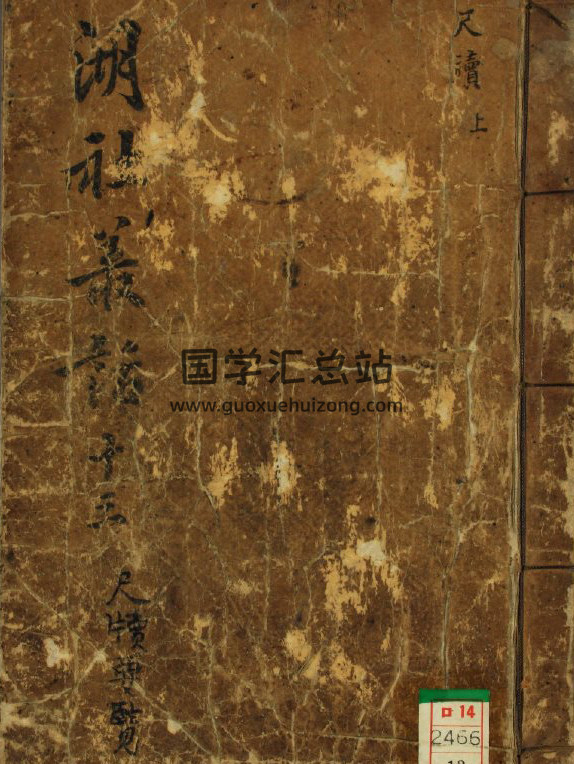 尺牘 上
湖社叢 十三 尺牘覽
国学汇总站
www.guoxuehuizong.com
ロ 14
2466